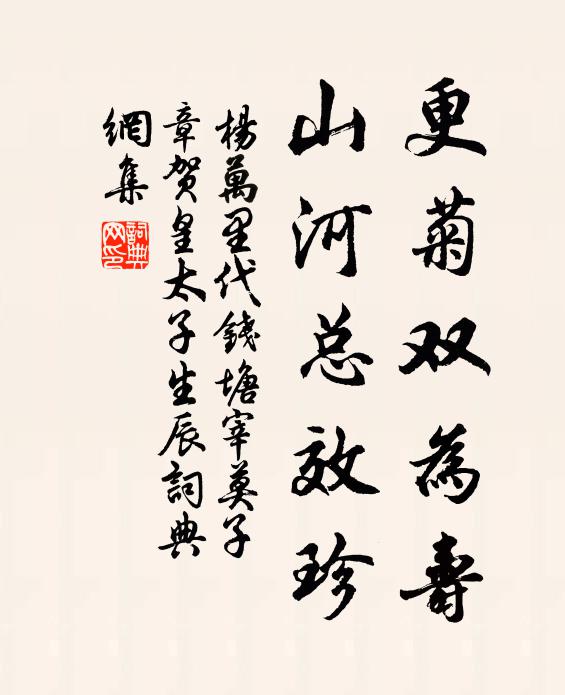 更菊双為壽
山河总效珍
楊萬里代錢塘宰莫子
章贺皇太子生辰詞典
網集
詞典
网印